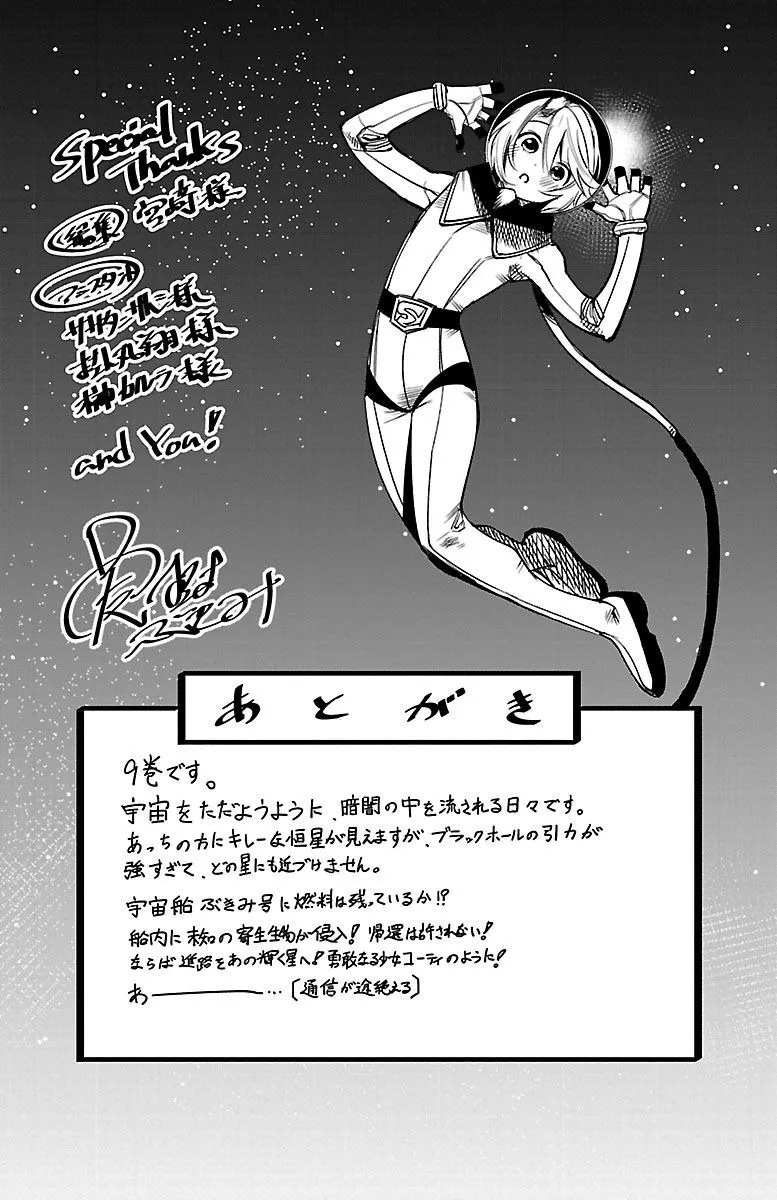 Special
Thanks
編集 宮崎様
アシスタント
サカタニサトシ様
松丸翔様
榊カルラ様
and You!
あとがき
9巻です。
宇宙をただようように、暗闇の中を流される日々です。
あっちの方にキレーな恒星が見えますが、ブラックホールの引力が
強すぎて、どの星にも近づけません。
宇宙船 ぶきみ号に燃料は残っているか!?
船内に未知の寄生生物が侵入! 帰還は許されない!
ならば進路をあの輝く星へ! 勇敢なる少女コーティのように!
わ――――…〔通信が途絶える〕
S